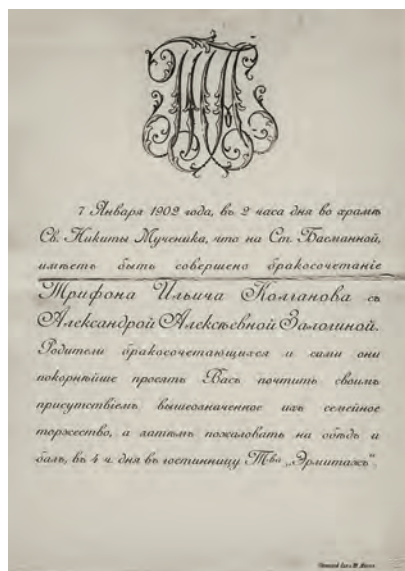 7 Января 1902 года, въ 2 часа дня во храмѣ
Св. Никиты Мученика, что на Ст. Басманной,
имѣетъ быть совершено бракосочетаніе
Трифона Ильича Колганова съ
Александрой Алексѣевной Залогиной.
Родители бракосочетающихся и сами они
покорнѣйше просятъ Васъ почтить своимъ
присутствіемъ вышеозначенное ихъ семейное
торжество, а затѣмъ пожаловать на обѣдъ и
балъ, въ 4 ч. дня въ гостинницу Т-ва „Эрмитажъ“.